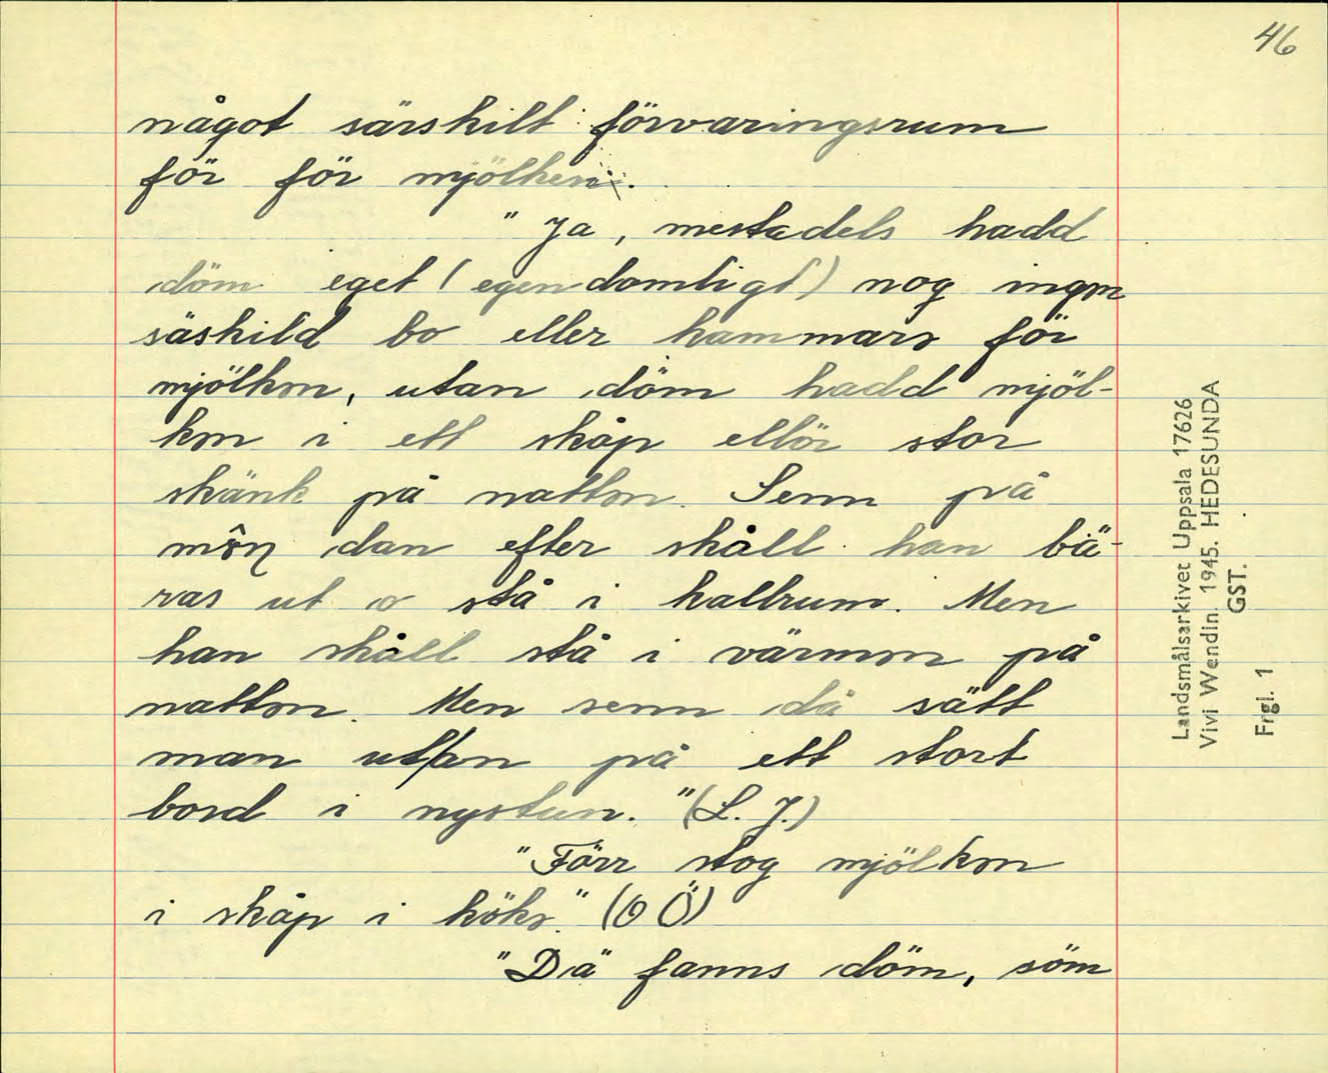 46
något särskilt förvaringsrum
för för mjölken.
" Ja, mestadels hadd
döm eget (egendomligt) nog ingen
säskild bo eller kammars för
mjölken, utan döm hadd mjöl-
ken i ett skåp ellör stor
skänk på natten. Senn på
dan efter skåll han bä-
ras ut o stå i kallrum. Men
han skåll stå i värmen på
natten. Men senn då sätt
man ut'an på ett stort
bord i nystun." (L. J.)
"Förr stog mjölken
i skåp i köks." (O Ö)
"Dä fanns döm, söm
Landsmålsarkivet Uppsala 17626
Vivi Wendin. 1945. HEDESUNDA
GST.
Frgl. 1